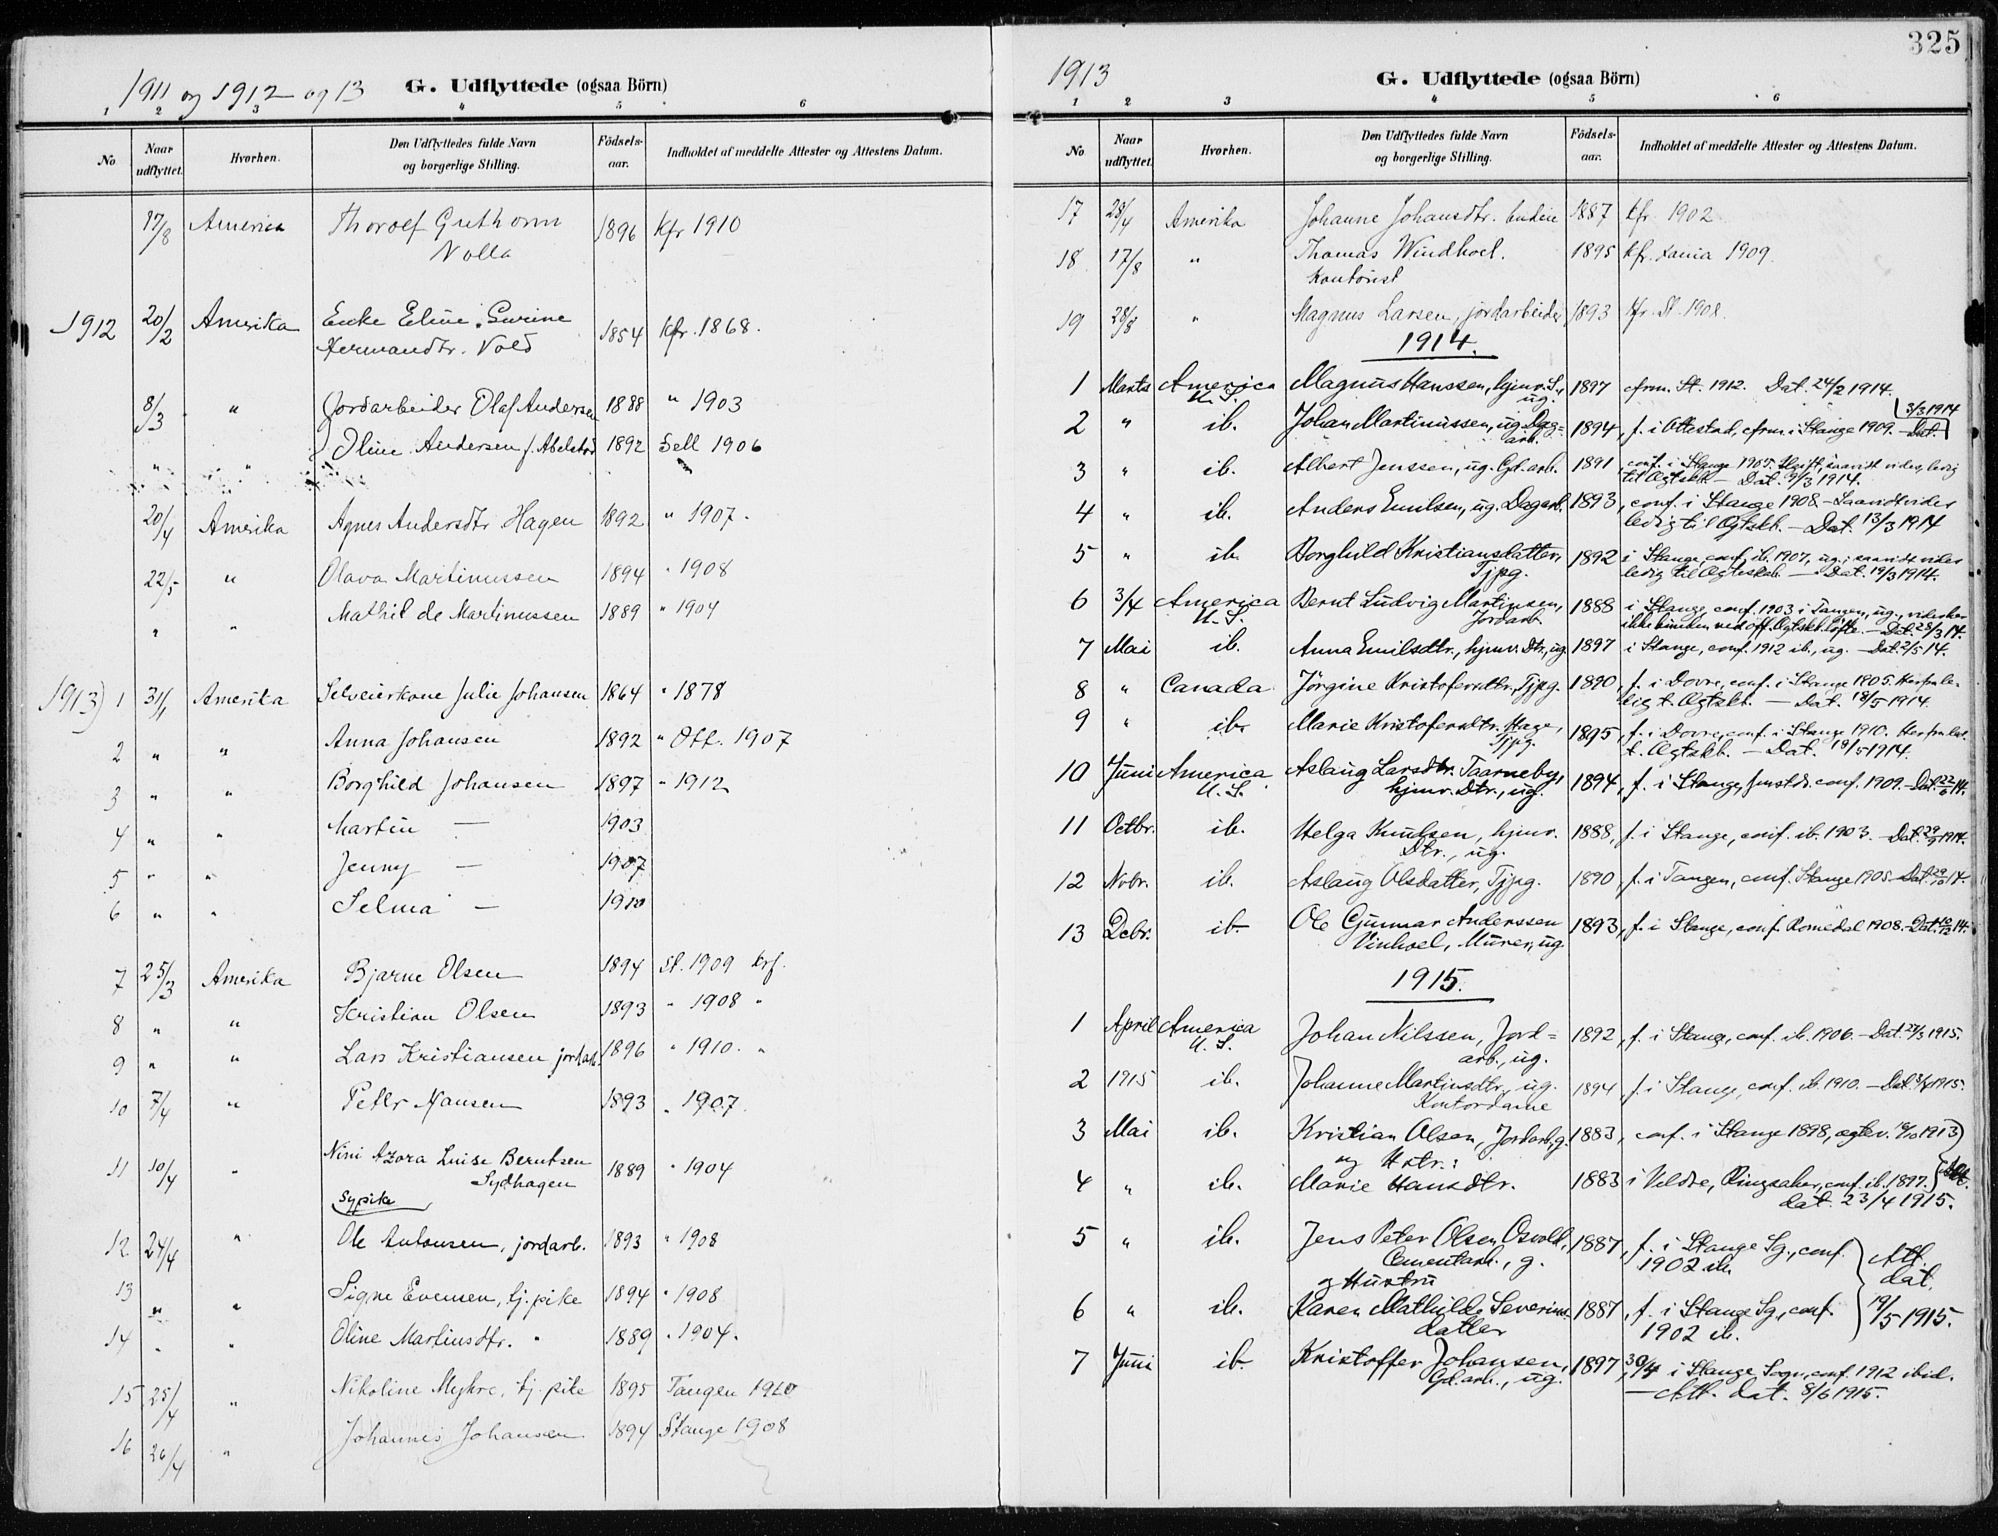 1911 og 1912 og 13 G. Udflyttede (ogsaa Börn)
1 2 3 4 5 6
No Naar udflyttet. Hvorhen. Den Udflyttedes fulde Navn og borgerlige Stilling. Födsels-aar. Indholdet af meddelte Attester og Attestens Datum.
17/8 America Thorolf Guthorm 1896 kfr 1910
Nolla
1912 20/2 Amerika Enke Eline Surine 1854 kfr. 1868.
Hermandtr. Vold
8/3 " Jordarbeider Olaf Andersen 1888 " 1903
" " Oline Andersen f. Abelsted 1892 Sell 1906
20/4 Amerika Agnes Andersdtr Hagen 1892 " 1907.
22/5 " Olava Martinussen 1894 " 1908
" " Mathilde Martinussen 1889 " 1904
1913) 1 31/1 Amerika Selveierkone Julie Johansen 1864 " 1878
2 " " Anna Johansen 1892 " Ott. 1907
3 " " Borghild Johansen 1897 " 1912
4 " " Martin — 1903
5 " " Jenny — 1907
6 " " Selma — 1910
7 25/3 Amerika Bjarne Olsen 1894 St. 1909 krf.
8 " " Kristian Olsen 1893 " 1908 "
9 " " Lars Kristiansen jordarb. 1896 " 1910. "
10 7/4 " Peter Hansen 1893 " 1907.
11 10/4 " Nini Azora Luise Berntsen 1889 " 1904
Sydhagen
Sypike
12 24/4 " Ole Antonsen, jordarb. 1893 " 1908
13 " " Signe Evensen, tj. pike 1894 " 1908
14 " " Oline Martinsdtr. " 1889 " 1904.
15 25/4 " Nikoline Myhre, tj. pike 1895 Tangen 1910
16 26/4 " Johannes Johansen 1894 Stange 1908
325
1913 G. Udflyttede (ogsaa Börn)
1 2 3 4 5 6
No Naar udflyttet. Hvorhen. Den Udflyttedes fulde Navn og borgerlige Stilling. Födsels-aar. Indholdet af meddelte Attester og Attestens Datum.
17 28/4 Amerika Johanne Johansdtr. budeie 1887 kfr. 1902
18 17/8 " Thomas Windhoel. 1895 kfr. xania 1909.
Kontorist
19 28/8 " Magnus Larsen, jordarbeider 1893 kfr. St. 1908.
1914.
1 Marts America U. S. Magnus Hanssen, hjmv. S., ug. 1897 cfrm. St. 1912. Dat. 24/2 1914.
2 " ib. Johan Martinussen, ug. Dag= arb. 1894, f. i Ottestad, cfrm. i Stange 1909. — Dat. 3/3 1914
3 " ib. Albert Jenssen, ug. Gd. arb. 1891, conf. i Stange 1905. Ugift, saavidt vides, ledig
til Ægtskb. — Dat. 9/3 1914.
4 " ib. Anders Emilsen, ug. Dagarb. 1893, conf. i Stange 1908 — Saavidt vides
ledig til Ægtskb. — Dat. 13/3 1914
5 " ib. Borghild Kristiansdatter, Tjpg. 1892 i Stange, conf. ib. 1907, ug., saavidt vides
ledig til Ægteskab. — Dat. 19/3 1914.
6 3/4 America U. S. Bernt Ludvig Martinsen, Jordarb. 1888 i Stange, conf. 1903 i Tangen, ug., vides
ikke bunden ved off. Ægtskb. löfte. — Dat. 28/3 14.
7 Mai ib. Anna Emilsdtr., hjmv. Dtr., ug. 1897 i Stange, conf. 1912 ib., ug. — Dat. 2/5 14.
8 " Canada Jörgine Kristofersdtr., Tjpg. 1890, f. i Dovre, conf. i Stange 1905.
t. Ægtskb. — Dat. 18/5 1914.
9 " ib. Marie Kristofersdtr. Hage, Tjpg. 1895, f. i Dovre, conf. i Stange 1910.
t. Ægtskb. — Dat. 18/5 1914.
10 Juni America U. S. Aslaug Larsdtr. Taarneby, hjmv. Dtr., ug. 1894, f. i Stange, conf. 1909. — Dat. 22/6 14.
11 Octbr. ib. Helga Knutsen, hjmv. Dtr., ug. 1888, f. i Stange, conf. ib. 1903. — Dat. 29/9 1914.
12 Nvbr. ib. Aslaug Olsdatter, Tjpg. 1890, f. i Tangen, conf. Stange 1905. — Dat. 29/10 14.
13 Dcbr. ib. Ole Gunnar Anderssen Vinhoel, Murer, ug. 1893, f. i Stange, conf. Romedal 1908. — Dat. 10/12 14.
1915.
1 April America U. S. Johan Nilssen, Jord= arb., ug. 1892, f. i Stange, conf. ib. 1906. — Dat. 27/3 1915.
2 1915 ib. Johanne Martinsdtr., ug. Kontordame 1894, f. i Stange, conf. ib. 1910. — Dat. 3/4 1915.
3 Mai ib. Kristian Olsen, Jordarb., g. 1883, conf. i Stange 1898, ægtev. 19/10 1913
og Hstr.:
4 " ib. Marie Hansdtr. 1883 i Veldre, Ringsaker, conf. ib. 1897. Att.
dat. 23/4 1915.
5 " ib. Jens Peter Olsen Osvold, Cementarb., g. 1887, f. i Stange Sg., conf. 1902 ib.
og Hustru
6 " ib. Karen Mathilde Severins= datter 1887, f. i Stange Sg., conf. 1902 ib.
Att. dat. 19/5 1915.
7 Juni ib. Kristoffer Johansen, Gd. arb., ug. 1897, 30/4 i Stange Sogn, conf. 1912 ibid.
— Att. dat. 8/6 1915.